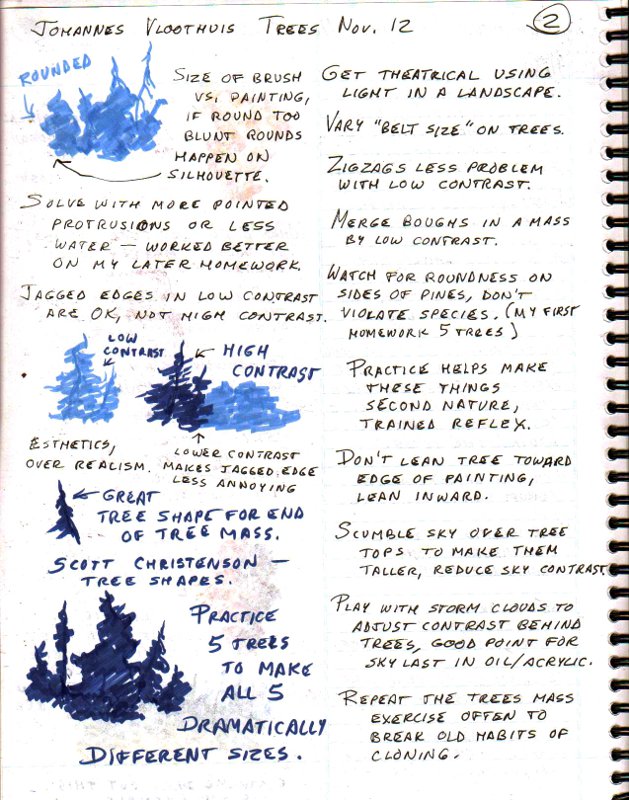 Johannes Vloothuis Trees Nov. 12
2
ROUNDED
Size of brush
vs. painting,
if round too
blunt rounds
happen on
silhouette.
Solve with more pointed
protrusions or less
water – worked better
on my later homework.
Jagged edges in low contrast
are ok, not high contrast.
Low
contrast
High
contrast
Esthetics,
over realism.
Lower contrast
makes jagged edge
less annoying
Great
tree shape for end
of tree mass.
Scott Christenson –
tree shapes.
Practice
5 trees
to make
all 5
dramatically
different sizes.
Get theatrical using
light in a landscape.
Vary "belt size" on trees.
Zigzags less problem
with low contrast.
Merge boughs in a mass
by low contrast.
Watch for roundness on
sides of pines, don't
violate species. (My first
homework 5 trees)
Practice helps make
these things
second nature,
trained reflex.
Don't lean tree toward
edge of painting,
lean inward.
Scumble sky over tree
tops to make them
taller, reduce sky contrast.
Play with storm clouds to
adjust contrast behind
trees, good point for
sky last in oil/acrylic.
Repeat the trees mass
exercise often to
break old habits of
cloning.